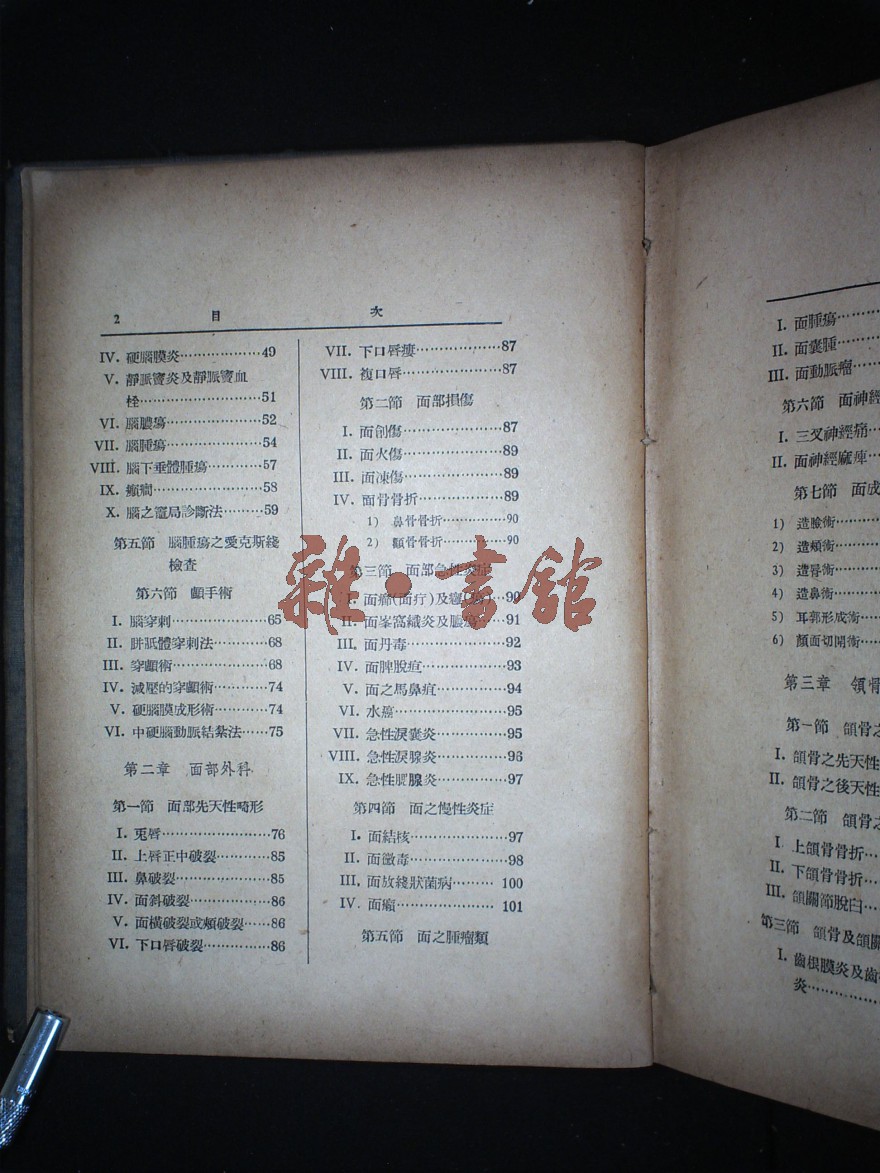 2 目 次
IV. 硬腦膜炎………………49
V. 靜脈竇炎及靜脈竇血
栓………………51
VI. 腦膿瘍………………52
VII. 腦腫瘍………………54
VIII. 腦下垂體腫瘍………57
IX. 癲癇………………58
X. 腦之竈局診斷法………59
第五節 腦腫瘍之愛克斯綫
檢查
第六節 顱手術
I. 腦穿刺………………65
II. 胼胝體穿刺法………68
III. 穿顱術………………68
IV. 減壓的穿顱術………74
V. 硬腦膜成形術………74
VI. 中硬腦動脈結紮法……75
第二章 面部外科
第一節 面部先天性畸形
I. 兎唇………………76
II. 上唇正中破裂…………85
III. 鼻破裂………………85
IV. 面斜破裂……………86
V. 面橫破裂或頰破裂……86
VI. 下口唇破裂…………86
VII. 下口唇瘻………………87
VIII. 複口唇………………87
第二節 面部損傷
I. 面創傷………………87
II. 面火傷………………89
III. 面凍傷………………89
IV. 面骨骨折……………89
1) 鼻骨骨折…………90
2) 顴骨骨折…………90
第三節 面部急性炎症
I. 面癤(面疔)及 90
II. 面峯窩織炎及膿瘍……91
III. 面丹毒………………92
IV. 面脾脫疽……………93
V. 面之馬鼻疽…………94
VI. 水癌………………95
VII. 急性淚囊炎…………95
VIII. 急性淚腺炎…………96
IX. 急性腮腺炎…………97
第四節 面之慢性炎症
I. 面結核………………97
II. 面黴毒………………98
III. 面放綫狀菌病……… 100
IV. 面癩………………101
第五節 面之腫瘤類
雜·書館
I. 面腫瘍……
II. 面囊腫……
III. 面動脈瘤……
第六節 面神經
I. 三叉神經痛……
II. 面神經麻痺……
第七節 面成
1) 造臉術……
2) 造頰術……
3) 造唇術……
4) 造鼻術……
5) 耳郭形成術……
6) 顏面切開術……
第三章 頜骨
第一節 頜骨之
I. 頜骨之先天性
II. 頜骨之後天性
第二節 頜骨之
I. 上頜骨骨折……
II. 下頜骨骨折……
III. 頜關節脫臼……
第三節 頜骨及頜關
I. 齒根膜炎及齒
炎……